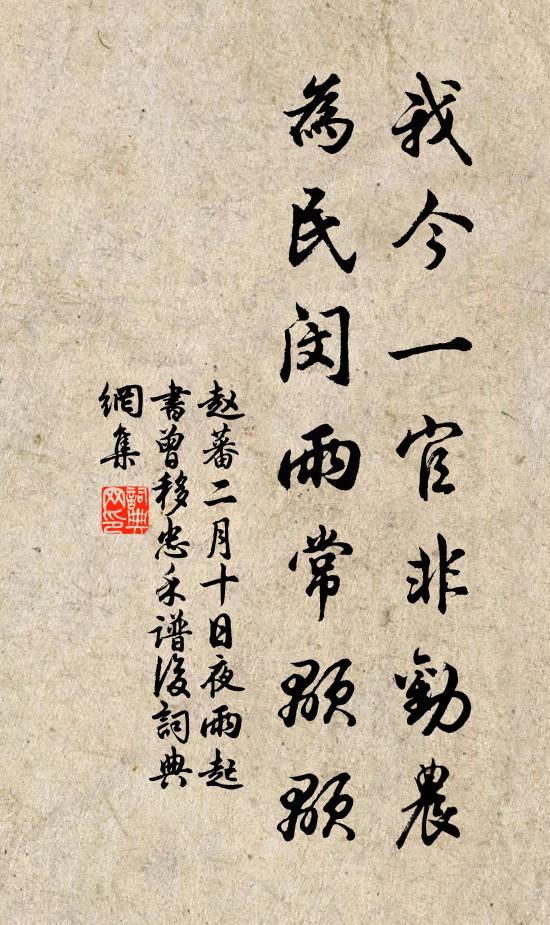 我今一官非勸農
為民閔雨常顒顒
赵蕃二月十日夜雨起
書曾移忠禾谱後詞典
網集
詞典
网印